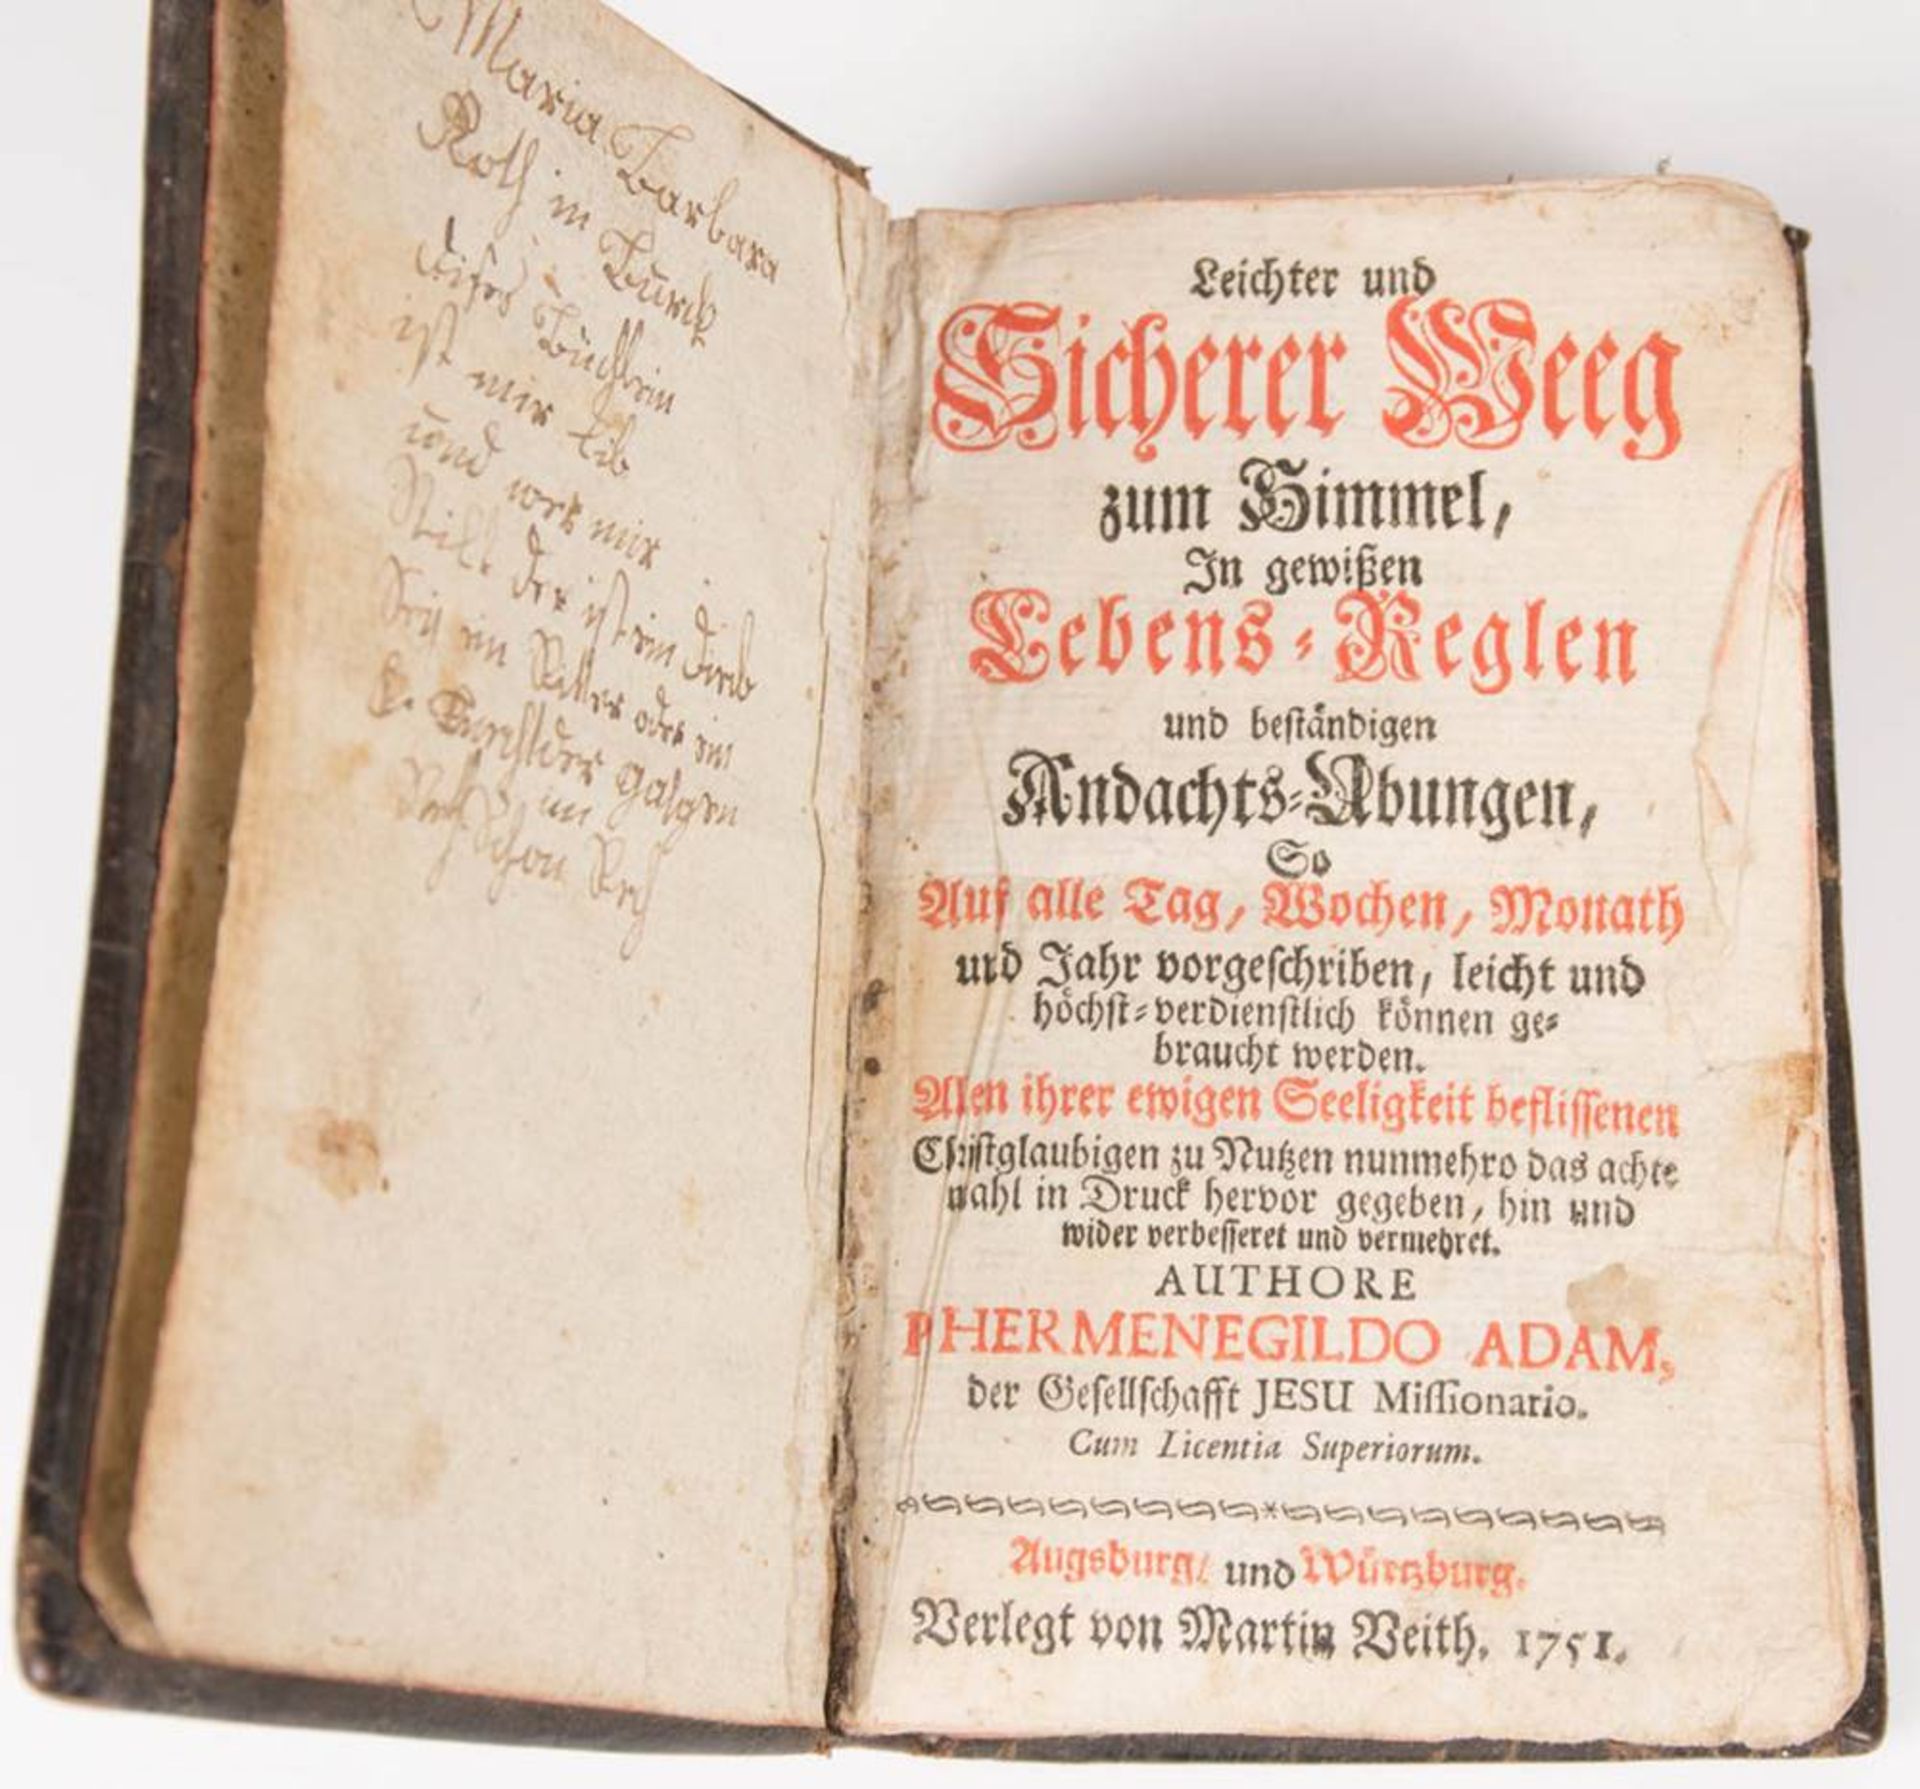 Maria Barbara
Roth in Burck
dises Büchlein
ist mir lib
und wer mir
stilt der ist ein dieb
Seÿ ein Ritter oder ein
galgen
im
Leichter und
Sicherer Weeg
zum Himmel,
In gewißen
Lebens-Reglen
und beständigen
Andachts-Übungen,
So
Auf alle Tag, Wochen, Monath
und Jahr vorgeschriben, leicht und
höchst-verdienstlich können ge-
braucht werden.
Allen ihrer ewigen Seeligkeit beflissenen
Christglaubigen zu Nutzen nunmehro das achte
mahl in Druck hervor gegeben, hin und
wider verbesseret und vermehret.
AUTHORE
P HERMENEGILDO ADAM,
der Gesellschafft JESU Missionario.
Cum Licentia Superiorum.
Augsburg, und Würtzburg.
Verlegt von Martin Veith. 1751.